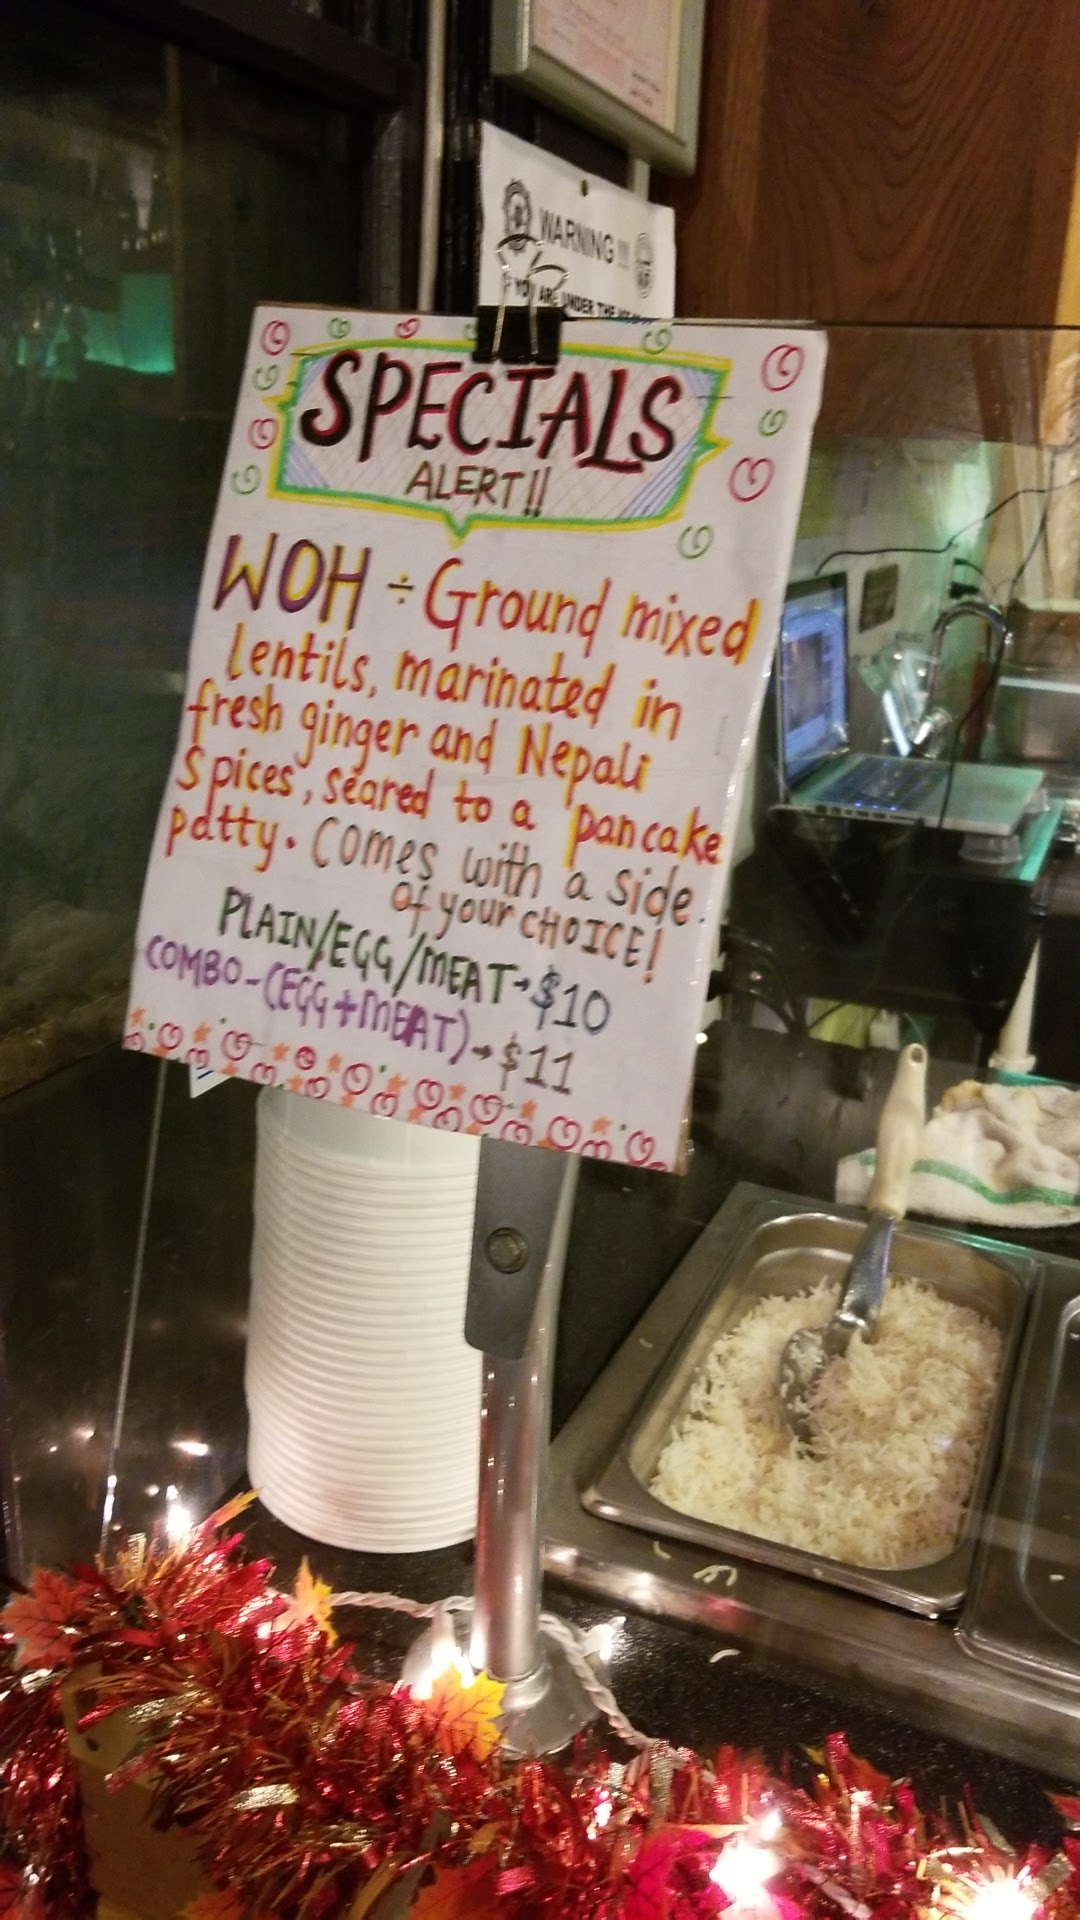 WARNING !!!
YOU ARE UNDER THE
SPECIALS
ALERT!!
WOH ÷ Ground mixed
lentils, marinated in
fresh ginger and Nepali
Spices, seared to a pancake
patty. Comes with a side
of your CHOICE!
PLAIN/EGG/MEAT→$10
COMBO-(EGG+MEAT)→$11